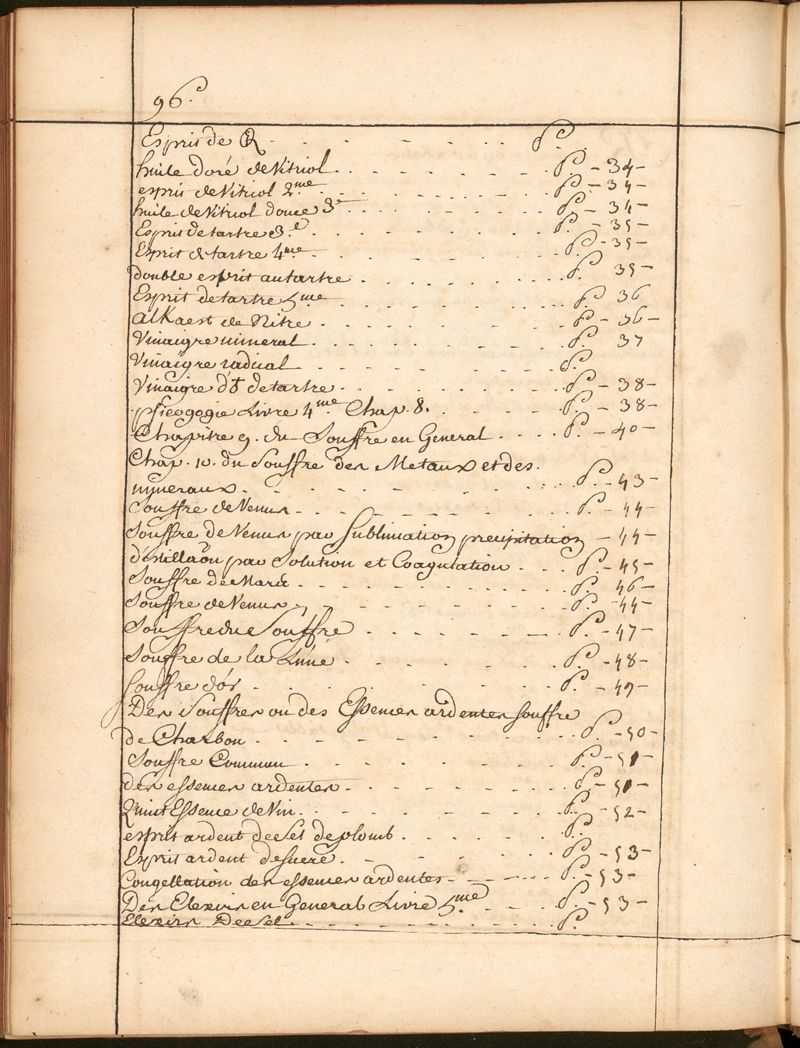 96.
Esprit de R . . . . . . . P.
huile doré de Vitriol . . . . . . P. - 34 -
esprit de Vitriol 2.me . . . . . . P. - 34 -
huile de Vitriol douce 3e . . . . . . P. - 34 -
Esprit de tartre 3.e . . . . . . P. - 35 -
Esprit de tartre 4me . . . . . . P. - 35 -
double esprit au tartre . . . . . . P. 35 -
Esprit de tartre 5me . . . . . . P. 36
alKaest de Nitre . . . . . . P. - 36 -
Vinaigre mineral . . . . . . P. 37
Vinaigre radical . . . . . . P.
Vinaigre d'♁ de tartre . . . . . . P. - 38 -
Livre 4.me Chap. 8. . . . . . P. - 38 -
Chapitre 9. du Souffre en General . . . . P. - 40 -
Chap. 10. du Souffre des Metaux et des
mineraux . . . . . . P. - 43 -
Souffre de Venus . . . . . . P. - 44 -
Souffre de Venus par Sublimation precipitation - 44 -
distillaõn par Solution et Coagulation . . . P. - 45 -
Souffre de Mars . . . . . . P. 46 -
Souffre de Venus . . . . . . P. - 44 -
Souffre du Souffre . . . . . . P. - 47 -
Souffre de la Lune . . . . . . P. - 48 -
Souffre d'or . . . . . . P. - 49 -
Des Souffres ou des Essences ardentes souffre
de Charbon . . . . . . P. - 50 -
Souffre Commun . . . . . . P. - 51 -
des essences ardentes . . . . . . P. - 51 -
Quint Essence de Vin . . . . . . P. - 52 -
esprit ardent de sel de plomb . . . . . . P.
Esprit ardent de sucre . . . . . . P. - 53 -
Congellation des essences ardentes . . . . P. - 53 -
Des Elexirs en General Livre 5.me . . . P. - 53 -
Elexirs De sel . . . . . . P.